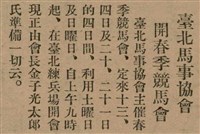 臺北馬事協會
開春季競馬會
臺北馬事協會主催春
季競馬會、定來十三、十
四日及二十、二十一日
的四日間、利用土曜日
及日曜日、自上午九時
起、在臺北練兵場開會
現正由會長金子光太郎
氏準備一切云。